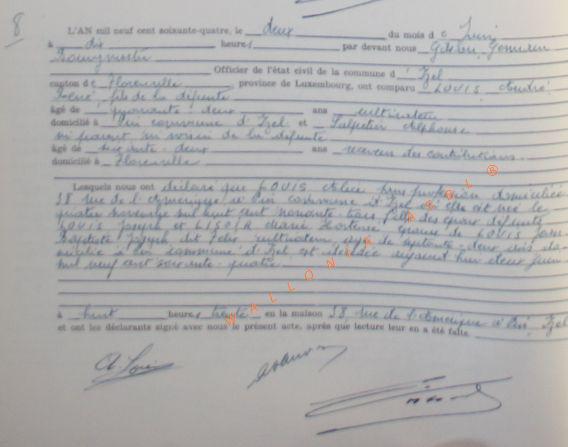 8
L'AN mil neuf cent soixante-quatre, le deux du mois de Juin
à dix heures/ par devant nous
Bourgmestre
Officier de l'état civil de la commune d'Izel
canton de Florenville province de Luxembourg, ont comparu LOUIS André
René, fils de la défunte
âgé de quarante-deux ans cultivateur
domicilié à Pin commune d'Izel et Alphonse
ni parent, ni voisin de la défunte
âgé de soixante-deux ans receveur des contributions.
domicilié à Florenville
Lesquels nous ont déclaré que LOUIS Alice sans profession domiciliée
38 rue de l'Amérique à Pin commune d'Izel où elle est née le
quatre novembre mil huit cent nonante trois, fille des époux défunts
LOUIS Joseph et Marie Hortense, épouse de LOUIS Jean
Baptiste Joseph dit cultivateur, âgé de septante-deux ans do-
micilié à Pin commune d'Izel est décédée aujourd'hui deux juin
mil neuf cent soixante-quatre
à huit heures trente en la maison 38 rue de l'Amérique à Pin, Izel
et ont les déclarants signé avec nous le présent acte, après que lecture leur en a été faite.
A. Louis
WALLONIE ASBL ®